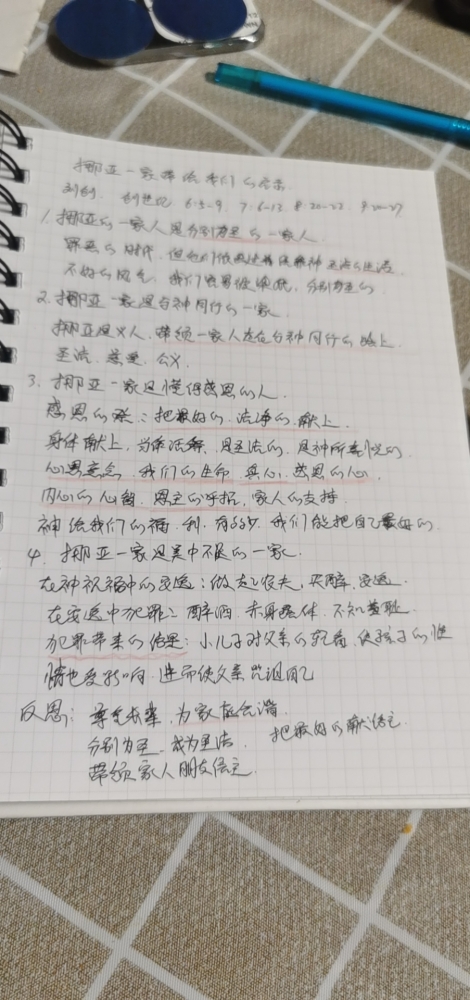 挪亚一家带给我们的启示
创世纪 6:5-9 7:6-12 8:20-22 9:20-27
1. 挪亚的一家人是分别为圣的一家人
罪恶的时代,但他们依然
不好的风气,我们容易被 分别为圣的
2. 挪亚一家是与神同行的一家
挪亚是义人,带领一家人走在与神同行的路上
圣洁 慈爱 公义
3. 挪亚一家是懂得感恩的人
感恩的祭:把最好的、洁净的献上
身体献上,当作活祭,是圣洁的,是神所喜悦的
心思意念 我们的生命 真心、感恩的心
内心的 恩主的呼招,家人的支持
神给我们的福利,有多少 我们能把自己最好的
4. 挪亚一家是美中不足的一家
在神祝福中的变迁:做起了农夫,买醉,变迁
在变迁中犯罪:醉酒 赤身露体 不知羞耻
犯罪带来的结果:小儿子对父亲的 使孩子的性
情也受影响,进而使父亲咒诅自己
反思:尊重长辈,为家庭和谐
分别为圣,成为圣洁 把最好的献给主
带领家人朋友信主